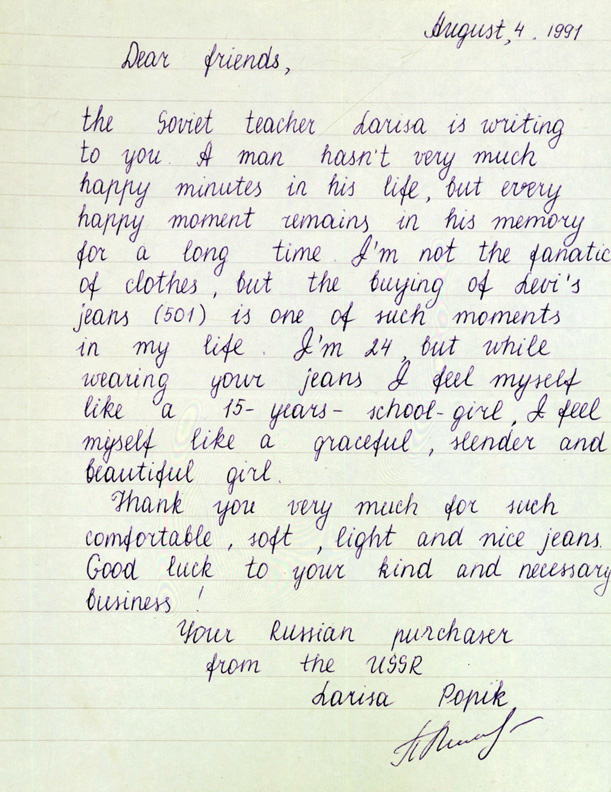 August, 4. 1991
Dear friends,
the Soviet teacher Larisa is writing
to you. A man hasn't very much
happy minutes in his life, but every
happy moment remains in his memory
for a long time. I'm not the fanatic
of clothes, but the buying of Levi's
jeans (501) is one of such moments
in my life. I'm 24, but while
wearing your jeans I feel myself
like a 15-years-school-girl, I feel
myself like a graceful, slender and
beautiful girl.
Thank you very much for such
comfortable, soft, light and nice jeans.
Good luck to your kind and necessary
business!
Your Russian purchaser
from the USSR
Larisa Popik